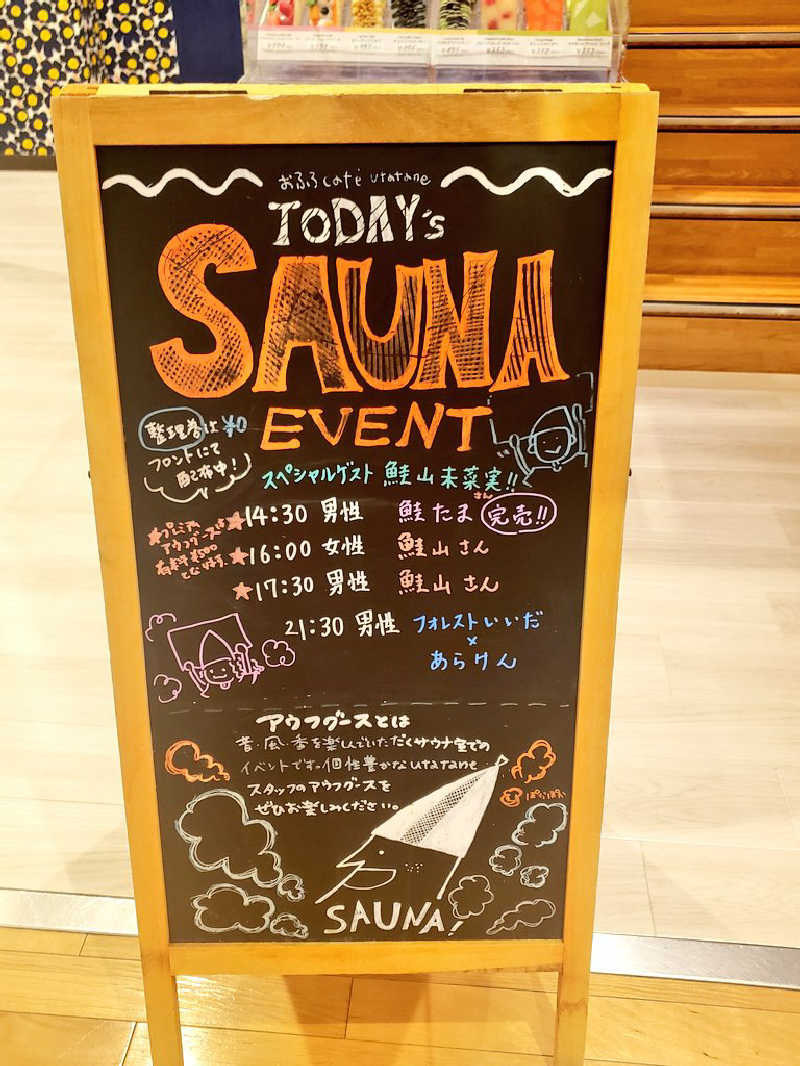 おふろ café utatane
TODAY's
SAUNA
EVENT
整理券は ¥0
フロントにて
配布中!
スペシャルゲスト 鮭山未菜実!!
★プレミアム
アウフグースは
★14:30 男性 鮭たまさん 完売!!
★16:00 女性 鮭山さん
★17:30 男性 鮭山さん
21:30 男性 フォレストいいだ
×
あらけん
アウフグースとは
音・風・香を楽しんでいただくサウナ室での
イベントです。個性豊かなutataneの
スタッフのアウフグースを
ぜひお楽しみください。
ぽかぽか
SAUNA!